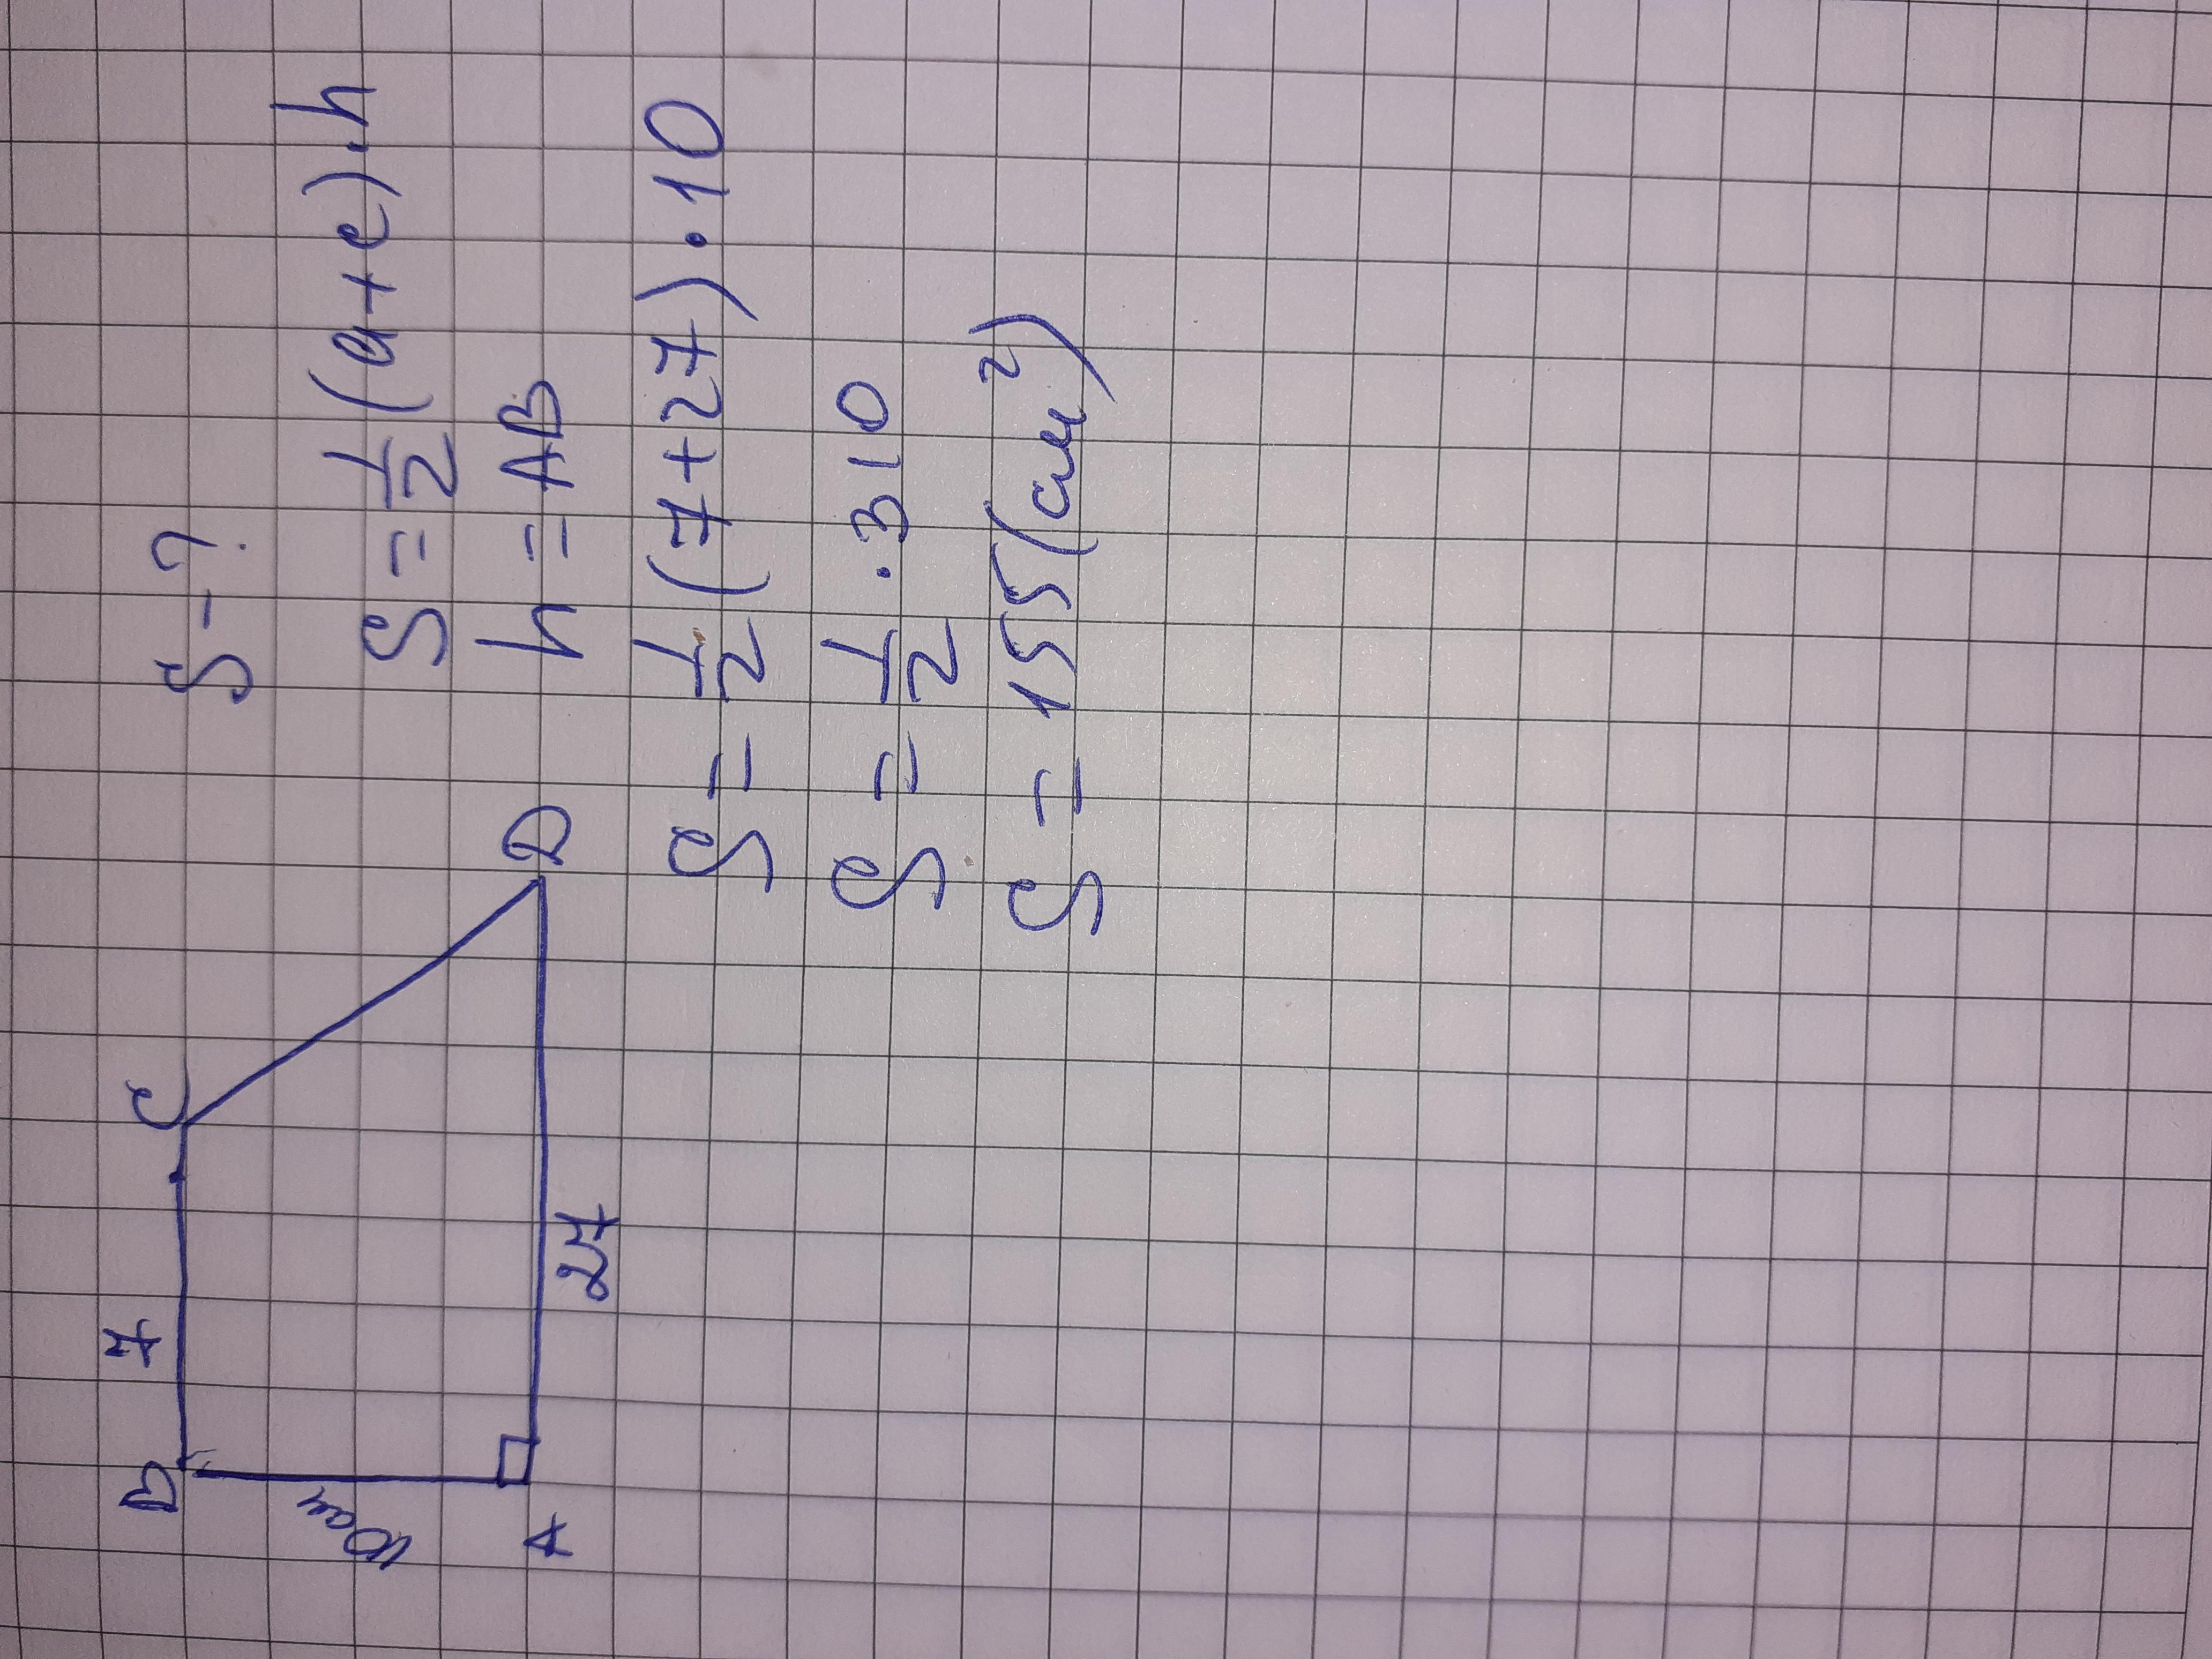 B 7 C
10 см
A 27 D
S - ?
S = 1/2 (a+в)·h
h = AB
S = 1/2 (7+27)·10
S = 1/2 · 310
S = 155 (см²)